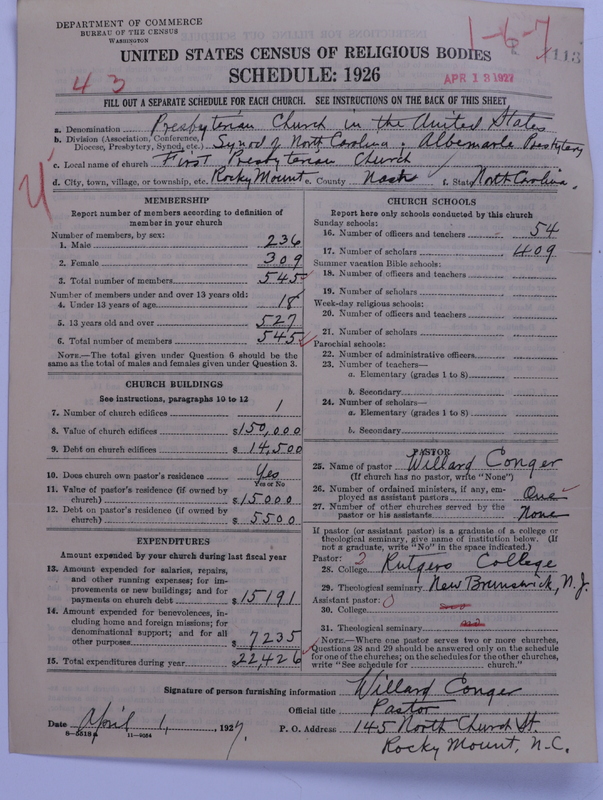 DEPARTMENT OF COMMERCE
BUREAU OF THE CENSUS
WASHINGTON
1-6-7
113
UNITED STATES CENSUS OF RELIGIOUS BODIES
SCHEDULE: 1926
43
APR 13 1927
FILL OUT A SEPARATE SCHEDULE FOR EACH CHURCH. SEE INSTRUCTIONS ON THE BACK OF THIS SHEET
a. Denomination Presbyterian Church in the United States
b. Division (Association, Conference, Diocese, Presbytery, Synod, etc.) Synod of North Carolina; Albemarle Presbytery
c. Local name of church First Presbyterian Church
d. City, town, village, or township, etc. Rocky Mount e. County Nash f. State North Carolina.
MEMBERSHIP
Report number of members according to definition of
member in your church
Number of members, by sex:
1. Male 236
2. Female 309
3. Total number of members 545
Number of members under and over 13 years old:
4. Under 13 years of age 18
5. 13 years old and over 527
6. Total number of members 545
NOTE.—The total given under Question 6 should be
same as the total of males and females given under Question 3.
CHURCH BUILDINGS
See instructions, paragraphs 10 to 12
7. Number of church edifices 1
8. Value of church edifices $150,000
9. Debt on church edifices $14,500
10. Does church own pastor's residence Yes
Yes or No
11. Value of pastor's residence (if owned by
church) $15000
12. Debt on pastor's residence (if owned by
church) $5500
EXPENDITURES
Amount expended by your church during last fiscal year
13. Amount expended for salaries, repairs,
and other running expenses; for im-
provements or new buildings; and for
payments on church debt $15191
14. Amount expended for benevolences, in-
cluding home and foreign missions; for
denominational support; and for all
other purposes $7235
15. Total expenditures during year $22,426
CHURCH SCHOOLS
Report here only schools conducted by this church
Sunday schools:
16. Number of officers and teachers 54
17. Number of scholars 409
Summer vacation Bible schools:
18. Number of officers and teachers
19. Number of scholars
Week-day religious schools:
20. Number of officers and teachers
21. Number of scholars
Parochial schools:
22. Number of administrative officers
23. Number of teachers—
a. Elementary (grades 1 to 8)
b. Secondary
24. Number of scholars—
a. Elementary (grades 1 to 8)
b. Secondary
PASTOR
25. Name of pastor Willard Conger
(If church has no pastor, write "None")
26. Number of ordained ministers, if any, em-
ployed as assistant pastors One
27. Number of other churches served by the
pastor or his assistants None
If pastor (or assistant pastor) is a graduate of a college or
theological seminary, give name of institution below. (If
not a graduate, write "No" in the space indicated.)
Pastor: 3
28. College Rutgers College
29. Theological seminary New Brunswick, N.J.
Assistant pastor: 0
30. College
31. Theological seminary
NOTE.—Where one pastor serves two or more churches,
Questions 28 and 29 should be answered only on the schedule
for one of the churches; on the schedules for the other churches,
write "See schedule for church."
Signature of person furnishing information Willard Conger
Official title Pastor
Date April 1, 1927. P. O. Address 145 North Church St.
8-5518a 11-9084
Rocky Mount, N.C.